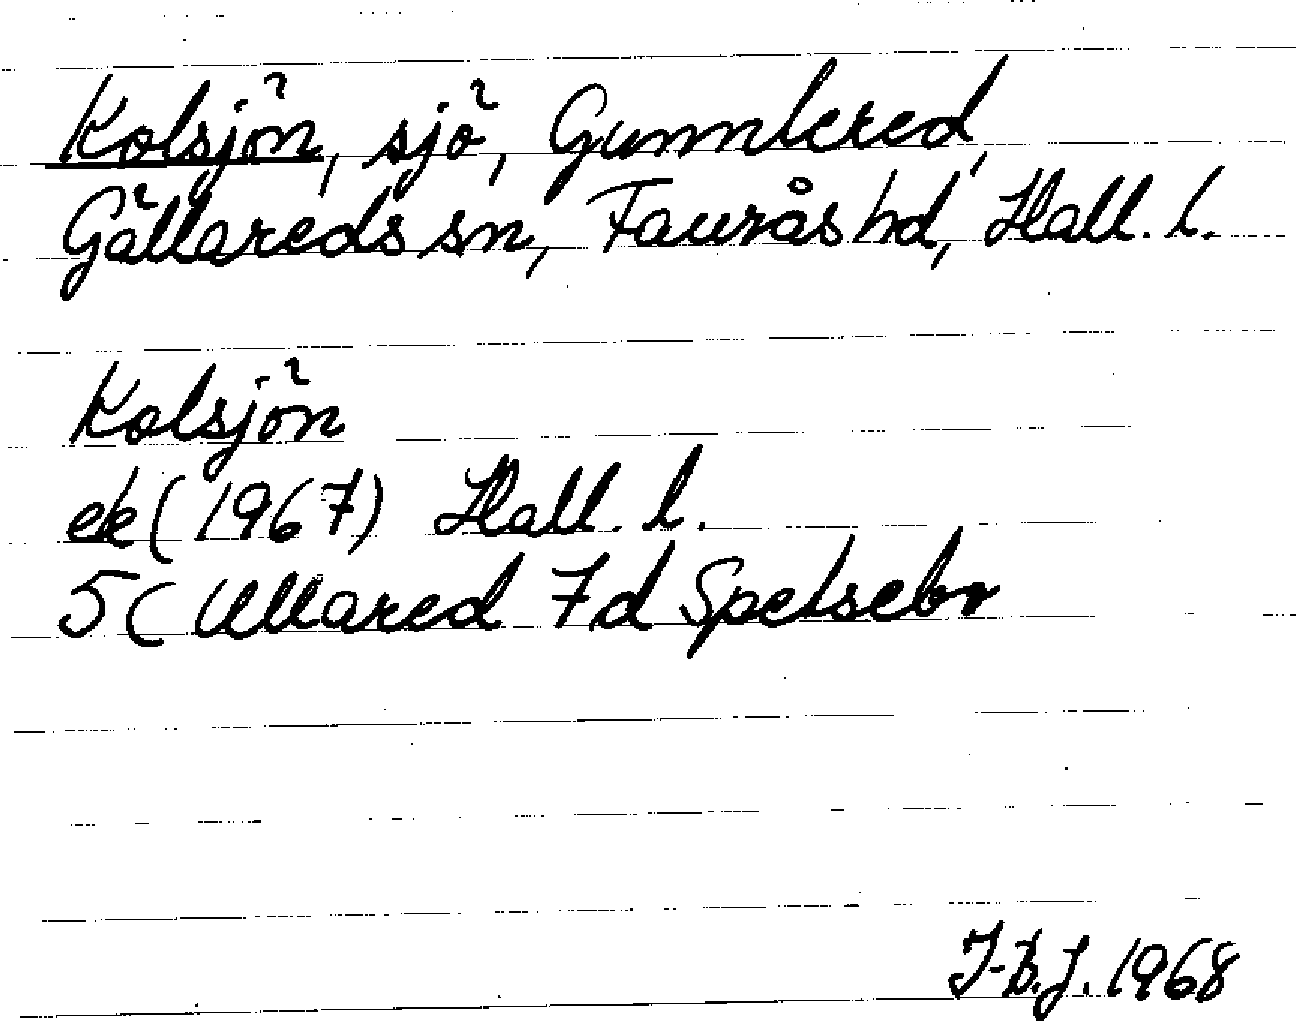 Kolsjön, sjö, Gunnlered,
Gällareds sn, Faurås hd, Hall. l.
Kolsjön
ek (1967) Hall. l.
5C Ullared 7d Spetsebo
I-B.J. 1968